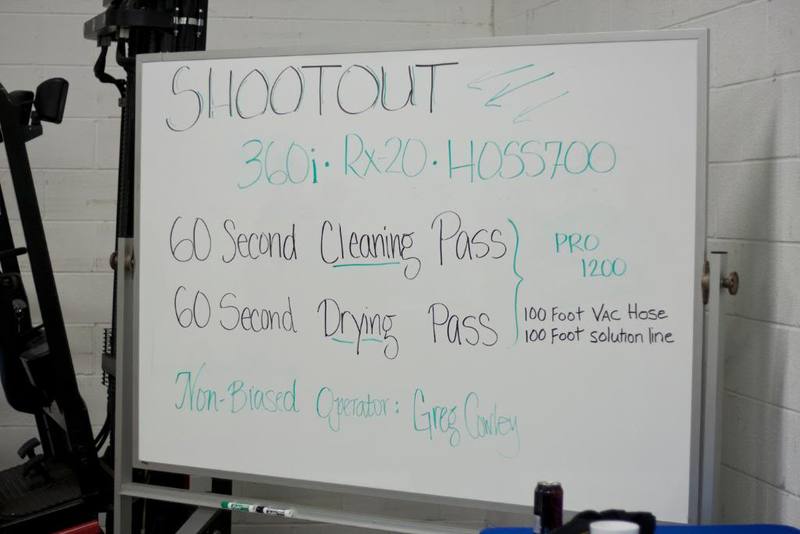 SHOOTOUT
360i · Rx-20 · HOSS700
60 Second Cleaning Pass
60 Second Drying Pass
PRO
1200
100 Foot Vac Hose
100 Foot solution line
Non-Biased Operator: Greg Cowley